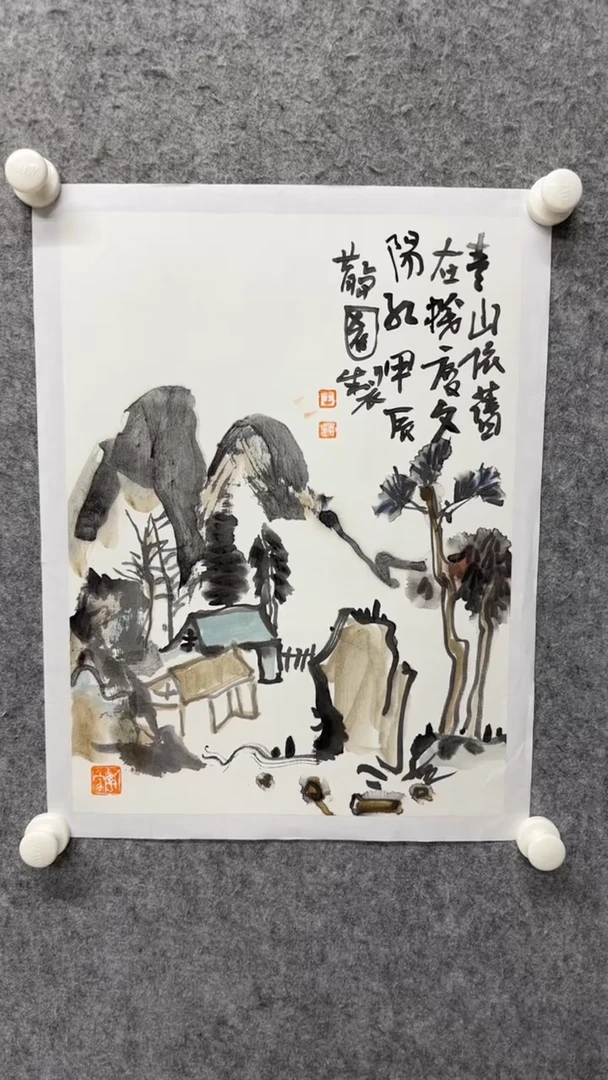 青山依舊
在幾度夕
陽紅甲辰
製